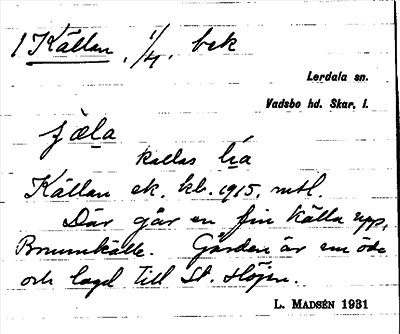 1 Källan. 1/4. bak
Lerdala sn.
Vadsbo hd. Skar. l.
kallas
Källan ek. kb. 1915, mtl.
Där går en fin källa upp,
Brunnkälla. Gården är nu öde
och lagd till St. Höjen.
L. MADSÉN 1931